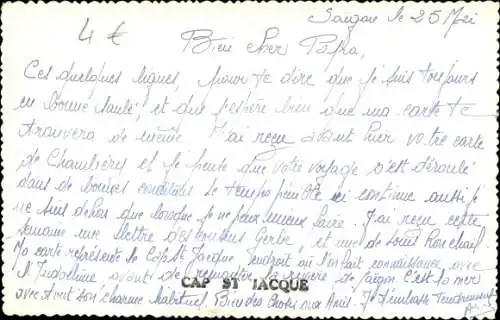 4 €
Saigon le 25 Mai
Bien cher Papa,
Ces quelques lignes, pour te dire que je suis toujours
en bonne santé, et que j'espère bien que ma carte te
trouvera de même. J'ai reçu avant hier votre carte
de Chambéry et je pense que votre voyage s'est déroulé
dans de bonnes conditions. Le temps ici continue aussi je
ne suis dehors que lorsque je ne peux mieux faire. J'ai reçu cette
semaine une lettre d' Gerbe, et une de Louis
Ma carte représente le Cap St Jacques, endroit où l'on fait connaissance avec
l'Indochine avant de remonter la rivière de Saigon. C'est la mer
avec tout son charme habituel. Bien des choses aux Amis. Je t'embrasse Tendrement
CAP ST JACQUE